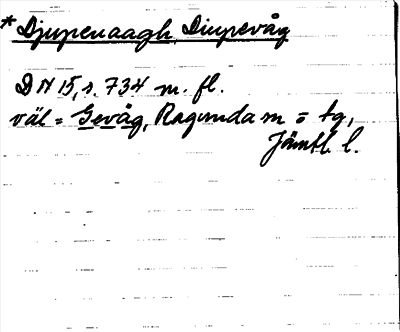 * Djupenaagh, Diupevåg
DN 15, s. 734 m. fl.
väl = Gevåg, Ragunda sn = tg,
Jämtl. l.